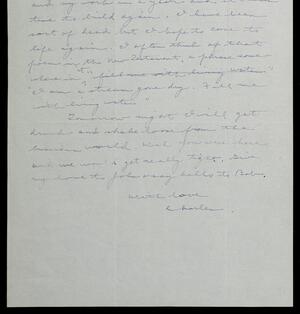 and my work in a year and
time to build again. I have been
sort of dead but I hope to come to
life again. I often think of that
poem in the New Testament, a phrase some
where in it "filled me with living water"
"I am a stream gone dry. Fill me
with living water"
Tomorrow night I will get
drunk and shake loose from the
human world. Wish you were here
and we won't get really tight. Give
my love to John & say hello to Bob.
much love
Charles.